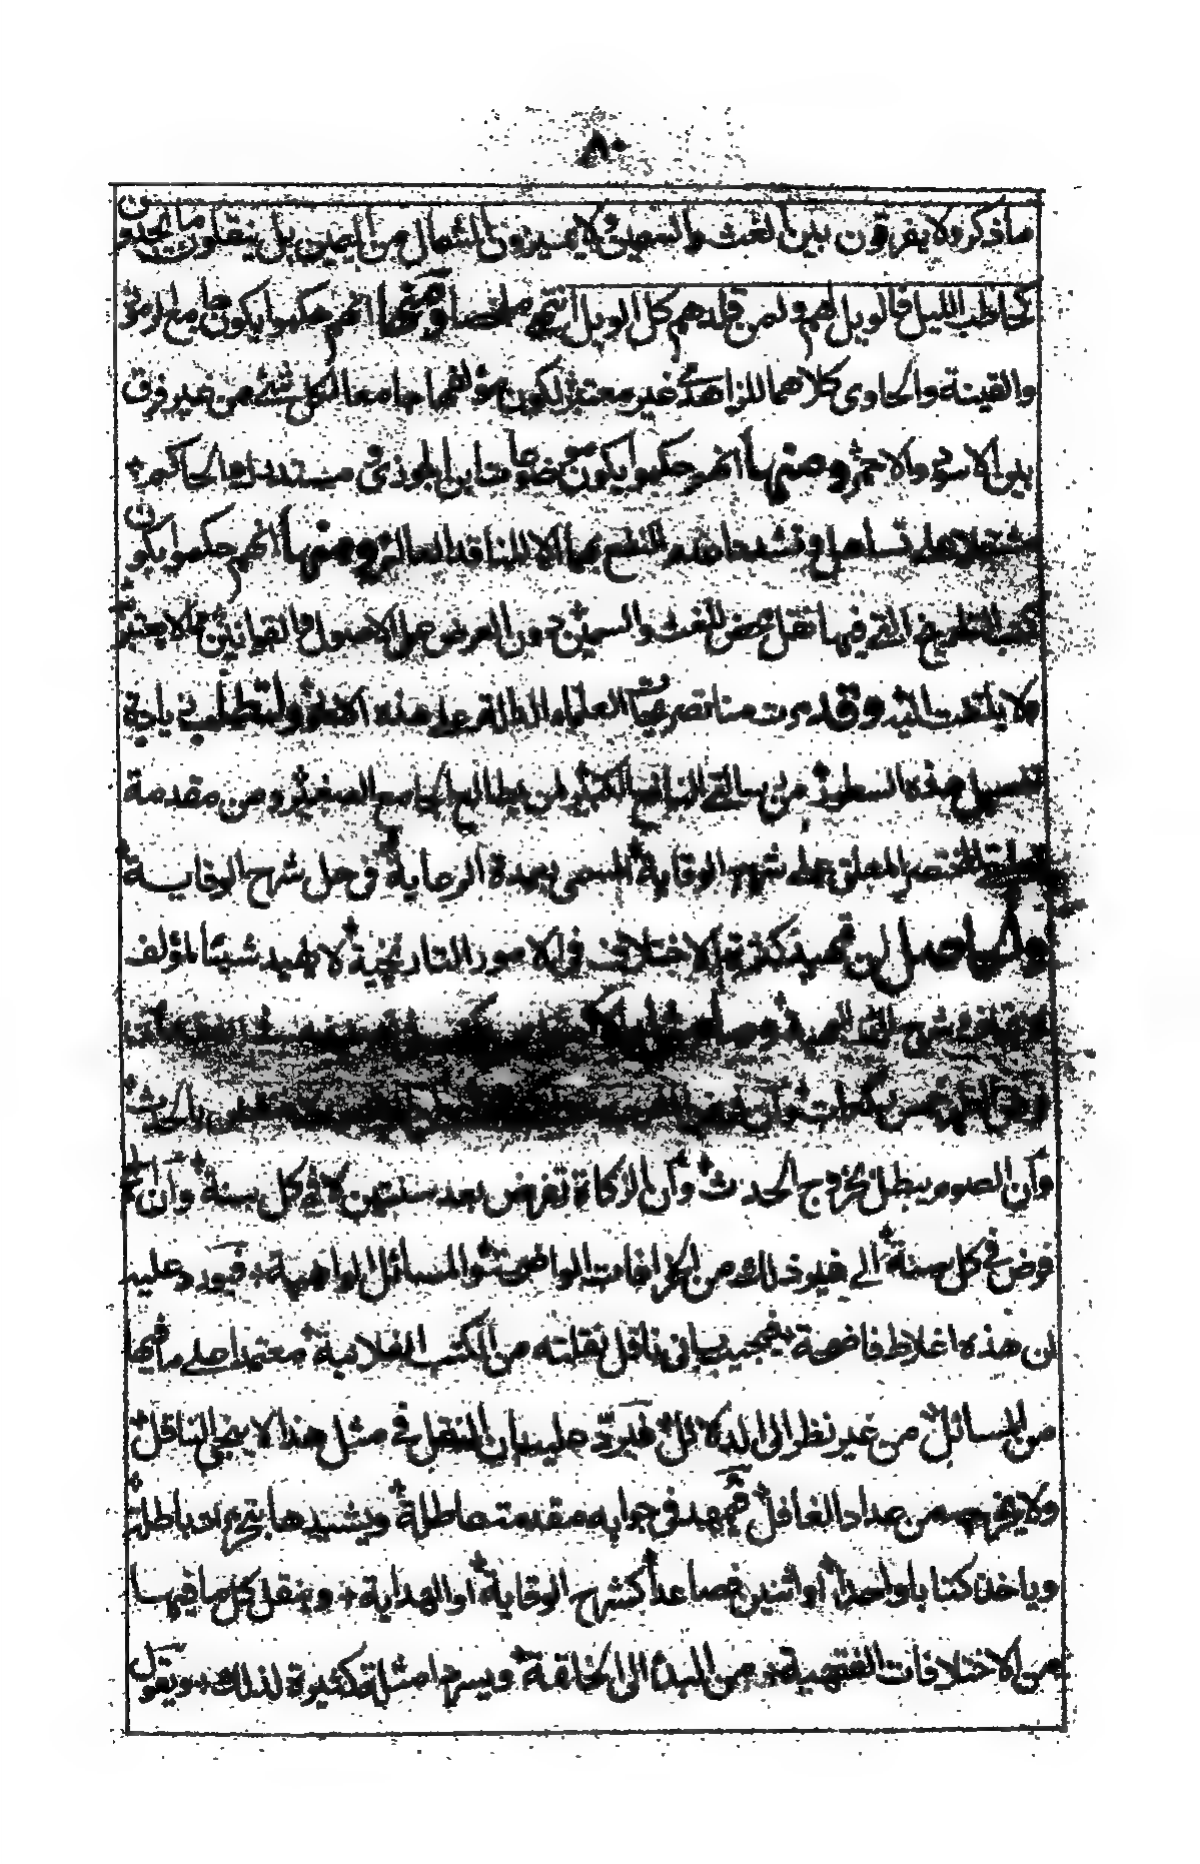 ٨٠
ما ذكر ولا يفرقون بين الغث والسمين ولا يميزون الشمال من اليمين بل ينقلون ما يجدون
كحاطب الليل فالويل لهم ولمن قلدهم كل الويل انتهى ملخصا ومنها انهم حكموا بكون جامع الرموز
والقنية والحاوي كلاهما للزاهدي غير معتبر لكون مؤلفهما جامعا لكل شئ من غير فرق
بين الاسود والاحمر ومنها انهم حكموا بكون موضوعات ابن الجوزي ومستدرك الحاكم
مشتملا على تساهل وتشدد النفع بهما الا للناقد العالم ومنها انهم حكموا بكون
كتب التاريخ التي فيها نقل محض للغث والسمين دون العرض على الاصول والقوانين مما لا يعتبر
ولا يلتفت اليه وقد مرت منا تصريحات العلماء الدالة على هذه الامور ولتطلب زيادة
تفصيل هذه السطور من رسالتي النافع الكبير لمن يطالع الجامع الصغير ومن مقدمة
المختصر المعلق على شرح الوقاية المسمى بعمدة الرعاية في حل شرح الوقاية
والحاصل ان تمهيد كثرة الاختلاف في الامور التاريخية لا يفيد شيئا لمؤلف
وان الصوم يبطل بخروج الحدث وان الزكاة تفرض بعد سنتين لا في كل سنة وان الحج
فرض في كل سنة الى غير ذلك من الخرافات الواضحة والمسائل الواهية فيورد عليه
ان هذه اغلاط فاضحة فيجيب بان ناقل نقلته من الكتب الفلانية معتمدا على ما فيها
من المسائل من غير نظر الى الدلائل فيرد عليه بان النقل في مثل هذا لا ينجي الناقل
ولا يخرجه من عداد الغافل فيمهد في جوابه مقدمة عاطلة ويشيدها بتحريرات باطلة
وياخذ كتابا واحدا او اثنين فصاعدا كشرح الوقاية او الهداية وينقل كل ما فيها
من الاختلافات الفقهية من المبدأ الى الخاتمة ويسرد امثلة كثيرة لذلك ويقول